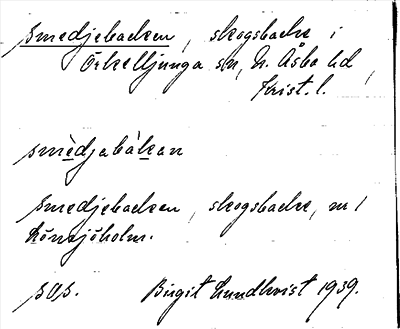 Smedjebacken, skogsbacke i
Örkelljunga sn, N. Åsbo hd,
Krist. l.
smèdjabàkan
Smedjebacken, skogsbacke, nr 1
Lönnsjöholm.
s.o.s. Birgit Lundkvist 1939.